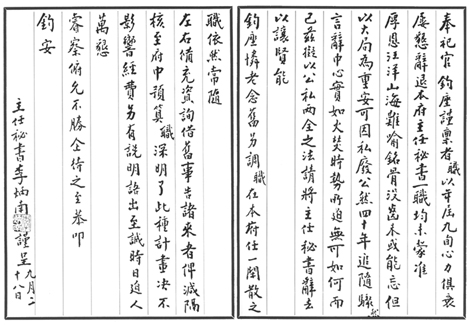 奉祀官 鈞座謹稟者 職以年屆九旬心力俱衰
屢懇辭退本府主任秘書一職均未蒙准
厚恩汪洋山海難喻銘骨沒齒未或能忘但
以大局為重安可因私廢公然四十年追隨驟
言辭中心實如火焚時勢所迫無可如何而
已茲擬以公私兩全之法請將主任秘書辭去
以讓賢能
鈞座憐老念舊另調 職在本府任一閒散之
職依然常隨
左右備充資詢借舊事告諸來者俾減隔
核至府中預算 職深明了此種計畫決不
影響經費另有說明語出至誠時日迫人
萬懇
睿察俯允不勝企待之至恭叩
鈞安
主任秘書李炳南謹呈 九月二十八日